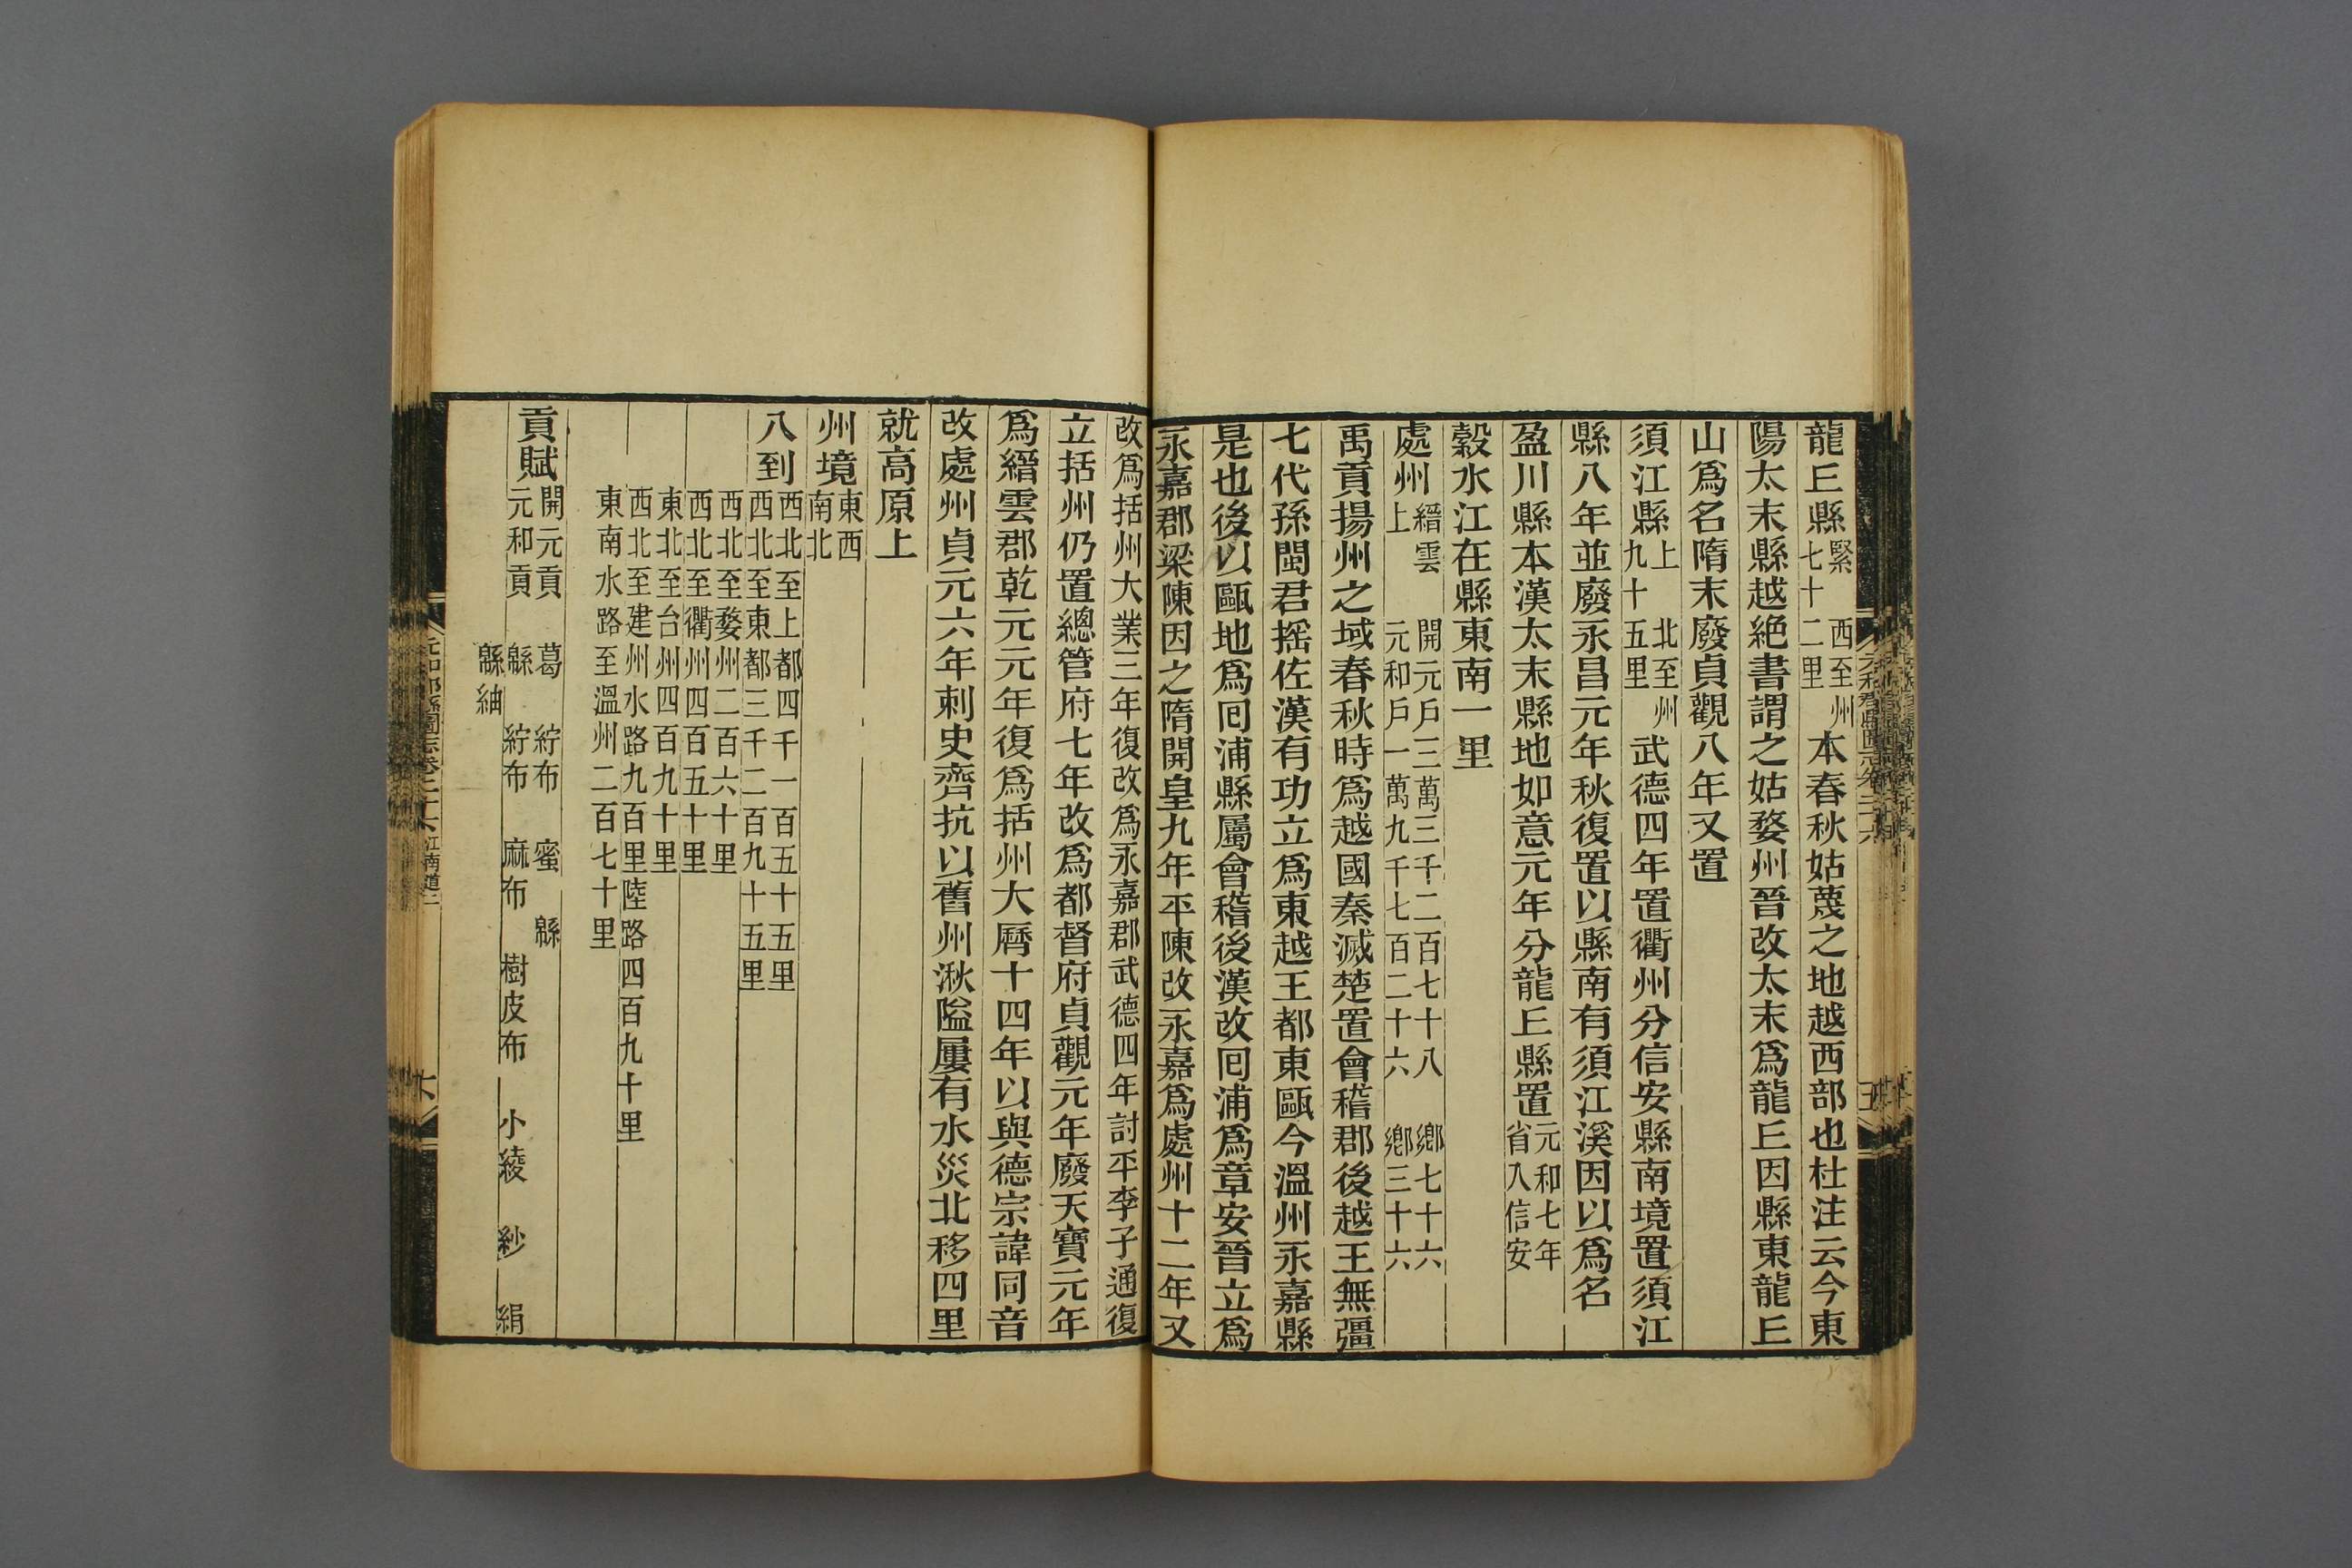 龍𠀉縣緊 西至州七十二里本春秋姑蔑之地越西部也杜注云今東
陽太末縣越絶書謂之姑婺州晉改太末爲龍𠀉因縣東龍𠀉
山爲名隋末廢貞觀八年又置
須江縣上 北至州九十五里武德四年置衢州分信安縣南境置須江
縣八年並廢永昌元年秋復置以縣南有須江溪因以爲名
盈川縣本漢太末縣地如意元年分龍𠀉縣置元和七年省入信安
穀水江在縣東南一里
處州縉雲上 開元戶三萬三千二百七十八 鄉七十六元和戶一萬九千七百二十六 鄉三十六
禹貢揚州之域春秋時爲越國秦滅楚置會稽郡後越王無彊
七代孫閩君揺佐漢有功立爲東越王都東甌今溫州永嘉縣
是也後以甌地爲囘浦縣屬會稽後漢改囘浦爲章安晉立爲
永嘉郡梁陳因之隋開皇九年平陳改永嘉爲處州十二年又
改爲括州大業三年復改爲永嘉郡武德四年討平李子通復
立括州仍置總管府七年改爲都督府貞觀元年廢天寶元年
爲縉雲郡乾元元年復爲括州大曆十四年以與德宗諱同音
改處州貞元六年刺史齊抗以舊州湫隘屢有水災北移四里
就高原上
州境東西南北
八到西北至上都四千一百五十五里西北至東都三千二百九十五里
西北至婺州二百六十里西北至衢州四百五十里
東北至台州四百九十里西北至建州水路九百里陸路四百九十里
東南水路至溫州二百七十里
貢賦開元貢 葛 紵布 蜜 緜元和貢 緜 紵布 麻布 樹皮布 小綾 紗 絹
緜紬
元和郡縣圖志卷二十六 江南道二
六
元和郡縣圖志卷二十六
五